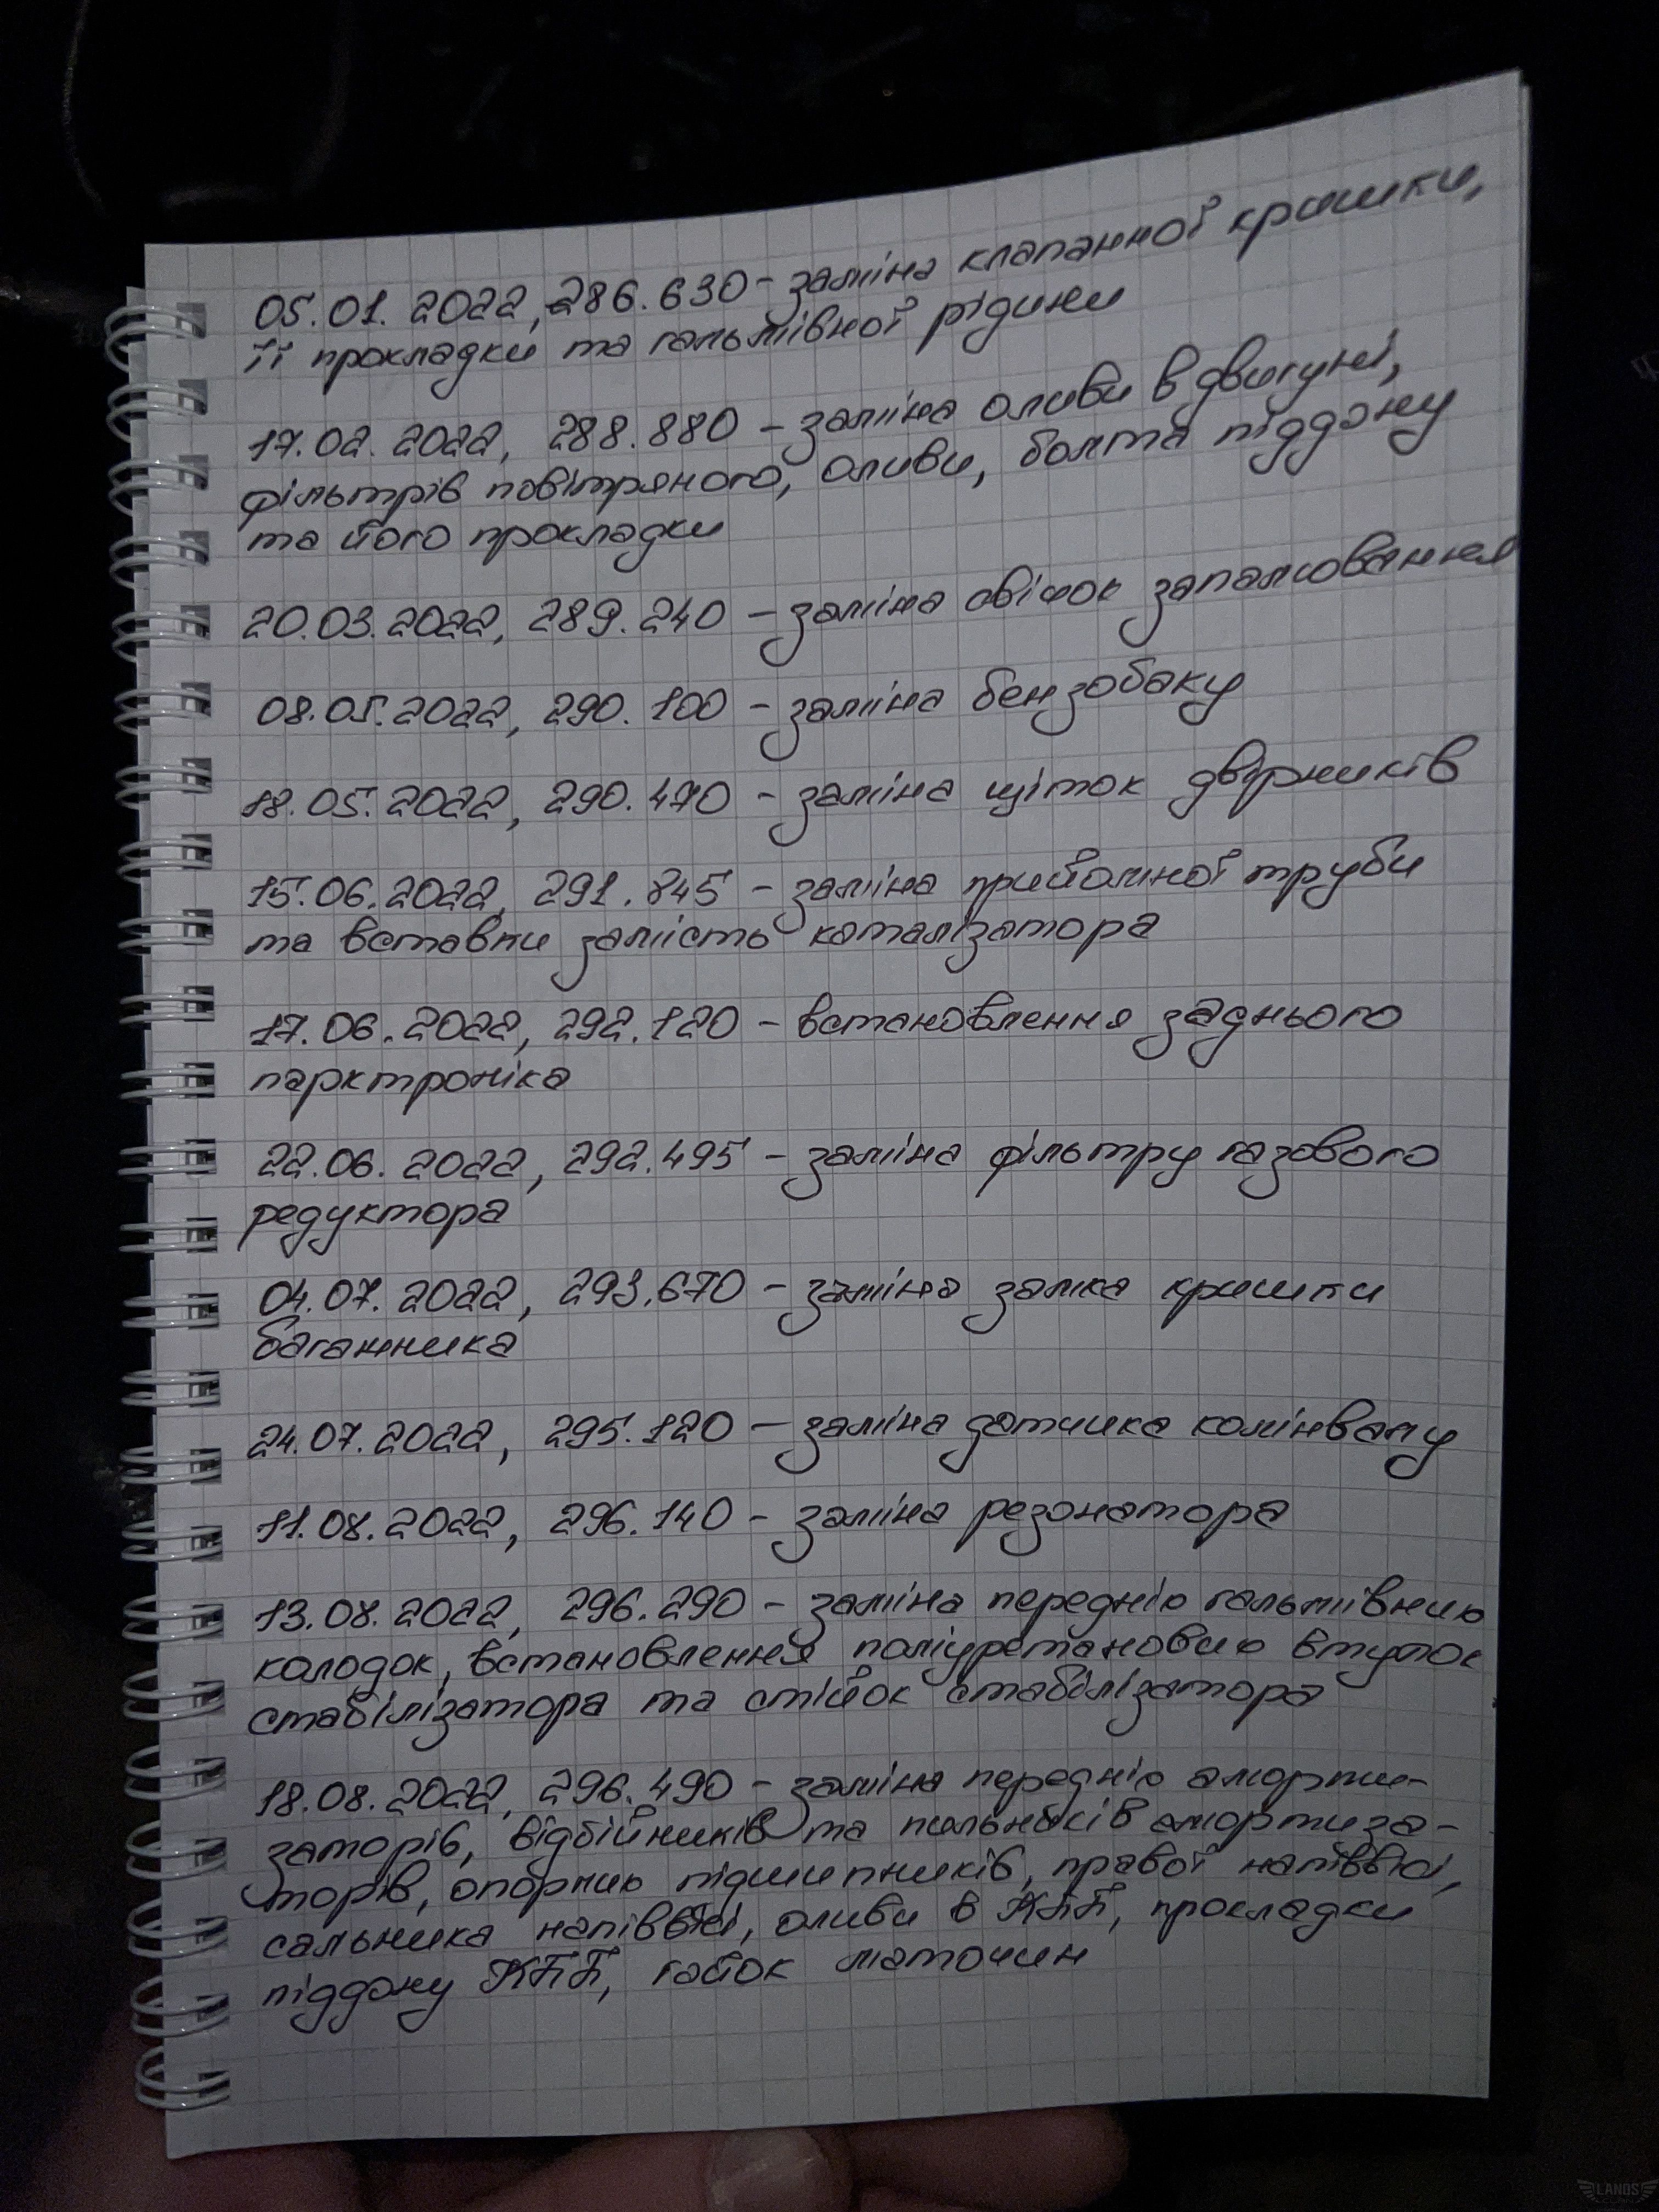 05.01.2022, 286.630 - заміна клапанної кришки,
її прокладки та гальмівної рідини
17.02.2022, 288.880 - заміна оливи в двигуні,
фільтрів повітряного, оливи, болта піддону
та його прокладки
20.03.2022, 289.240 - заміна свічок запалювання
08.05.2022, 290.100 - заміна бензобаку
18.05.2022, 290.470 - заміна щіток двірників
15.06.2022, 291.845 - заміна прийомної труби
та вставки замість каталізатора
17.06.2022, 292.120 - встановлення заднього
парктроніка
22.06.2022, 292.495 - заміна фільтру газового
редуктора
04.07.2022, 293.670 - заміна замка кришки
багажника
24.07.2022, 295.120 - заміна датчика колінвалу
11.08.2022, 296.140 - заміна резонатора
13.08.2022, 296.290 - заміна передніх гальмівних
колодок, встановлення поліуретанових втулок
стабілізатора та стійок стабілізатора
18.08.2022, 296.490 - заміна передніх аморти-
заторів, відбійників та пильників амортиза-
торів, опорних підшипників, правої напіввісі,
сальника напіввісі, оливи в КПП, прокладки
піддону КПП, гайок маточин
LANOS